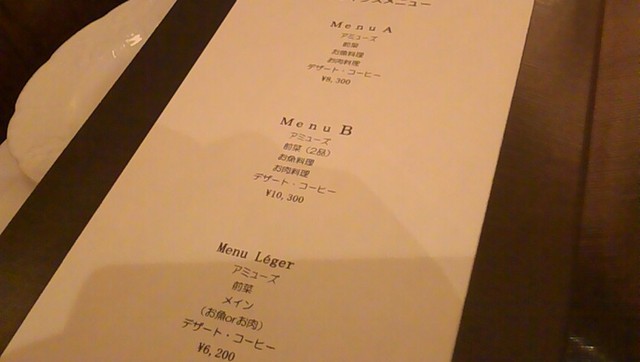 スメニュー
Menu A
アミューズ
前菜
お魚料理
お肉料理
デザート・コーヒー
¥8,300
Menu B
アミューズ
前菜（2品）
お魚料理
お肉料理
デザート・コーヒー
¥10,300
Menu Léger
アミューズ
前菜
メイン
（お魚orお肉）
デザート・コーヒー
¥6,200